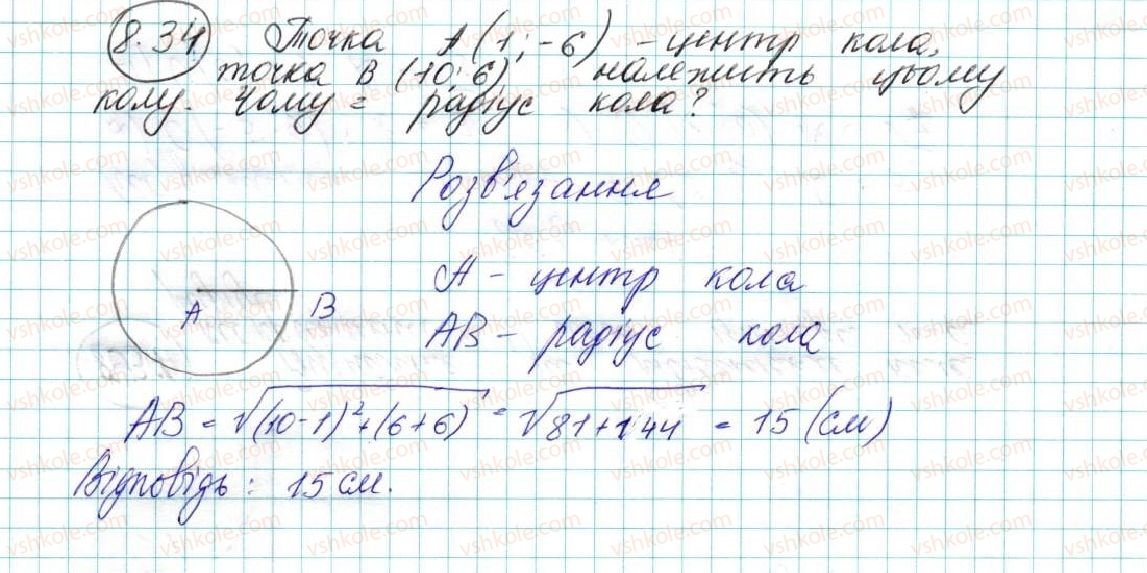 8.34 Точка A (1; -6) - центр кола,
точка B (10; 6) належить цьому
колу. Чому = радіус кола?
Розв'язання
A - центр кола
A B
AB - радіус кола
AB = √(10-1)²+(6+6) = √81+144 = 15 (см)
Відповідь: 15 см.
vshkole.com